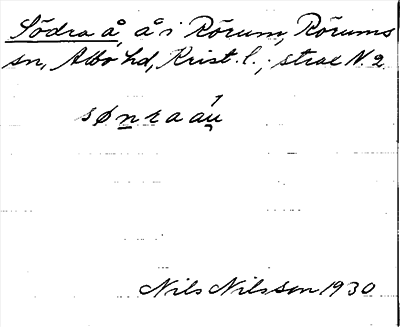 Södra å, å i Rörum, Rörums
sn, Albo hd, Krist. l.; strax N. 2
sønraáu̯
Nils Nilsson 1930